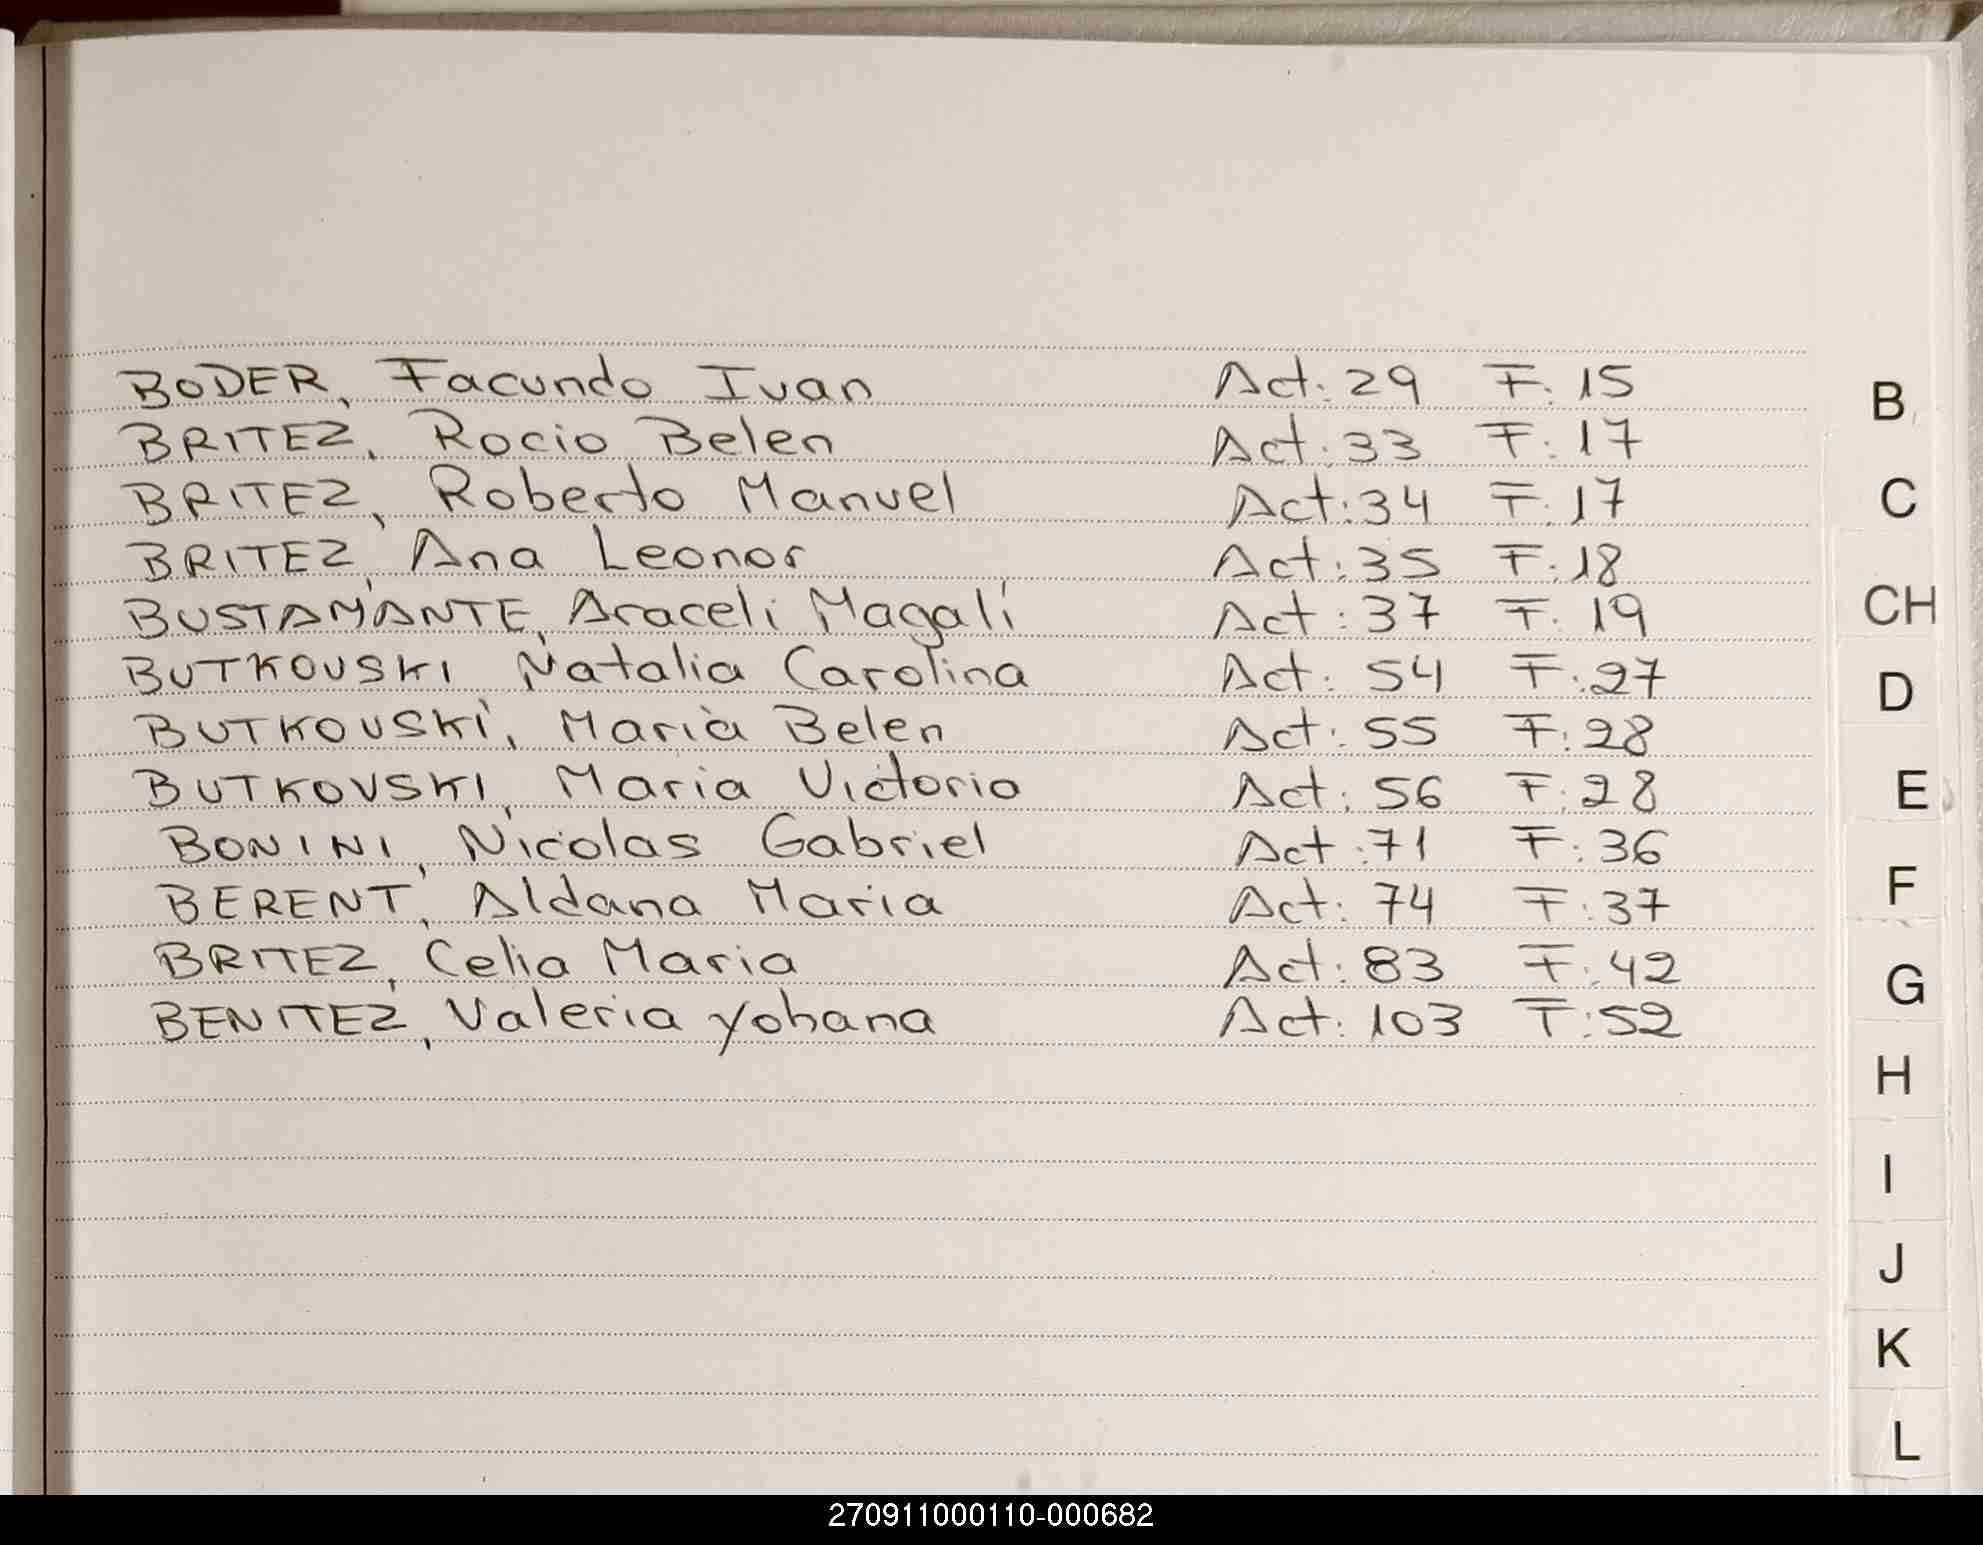 BODER, Facundo Ivan Act: 29 F: 15
BRITEZ, Rocio Belen Act: 33 F: 17
BRITEZ, Roberto Manuel Act: 34 F: 17
BRITEZ, Ana Leonor Act: 35 F: 18
BUSTAMANTE, Araceli Magalí Act: 37 F: 19
BUTKOVSKI, Natalia Carolina Act: 54 F: 27
BUTKOVSKI, Maria Belen Act: 55 F: 28
BUTKOVSKI, Maria Victoria Act: 56 F: 28
BONINI, Nicolas Gabriel Act: 71 F: 36
BERENT, Aldana Maria Act: 74 F: 37
BRITEZ, Celia Maria Act: 83 F: 42
BENITEZ, Valeria Yohana Act: 103 F: 52
B
C
CH
D
E
F
G
H
I
J
K
L
270911000110-000682